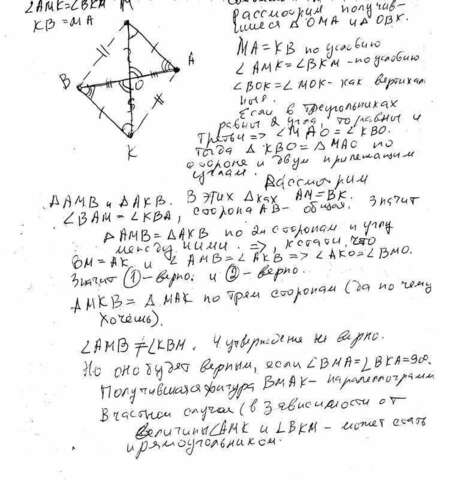 ∠AMK=∠BKM
KB = MA
M
B
A
O
K
Рассмотрим получив-
шиеся △OMA и △OBK.
MA = KB по условию
∠AMK = ∠BKM - по условию
∠BOK = ∠MOK - как вертикаль
ные.
Если в треугольниках
равны 2 угла, то равны и
третьи => ∠MAO = ∠KBO.
Тогда △KBO = △MAO по
стороне и двум прилежащим
углам.
Рассмотрим
△AMB и △AKB. В этих △ках AM = BK.
∠BAM = ∠KBA, сторона AB - общая. Значит
△AMB = △AKB по 2м сторонам и углу
между ними. =>, кстати, что
BM = AK и ∠AMB = ∠AKB => ∠AKO = ∠BMO.
Значит ① - верно. и ② - верно.
△MKB = △MAK по трем сторонам (да по чему
хочешь).
∠AMB ≠ ∠KBM. 4 утверждение не верно.
Но оно будет верным, если ∠BMA = ∠BKA = 90.
Получившаяся фигура BMAK - параллелограмм
В частном случае (в зависимости от
величины ∠AMK и ∠BKM - может стать
и прямоугольником.